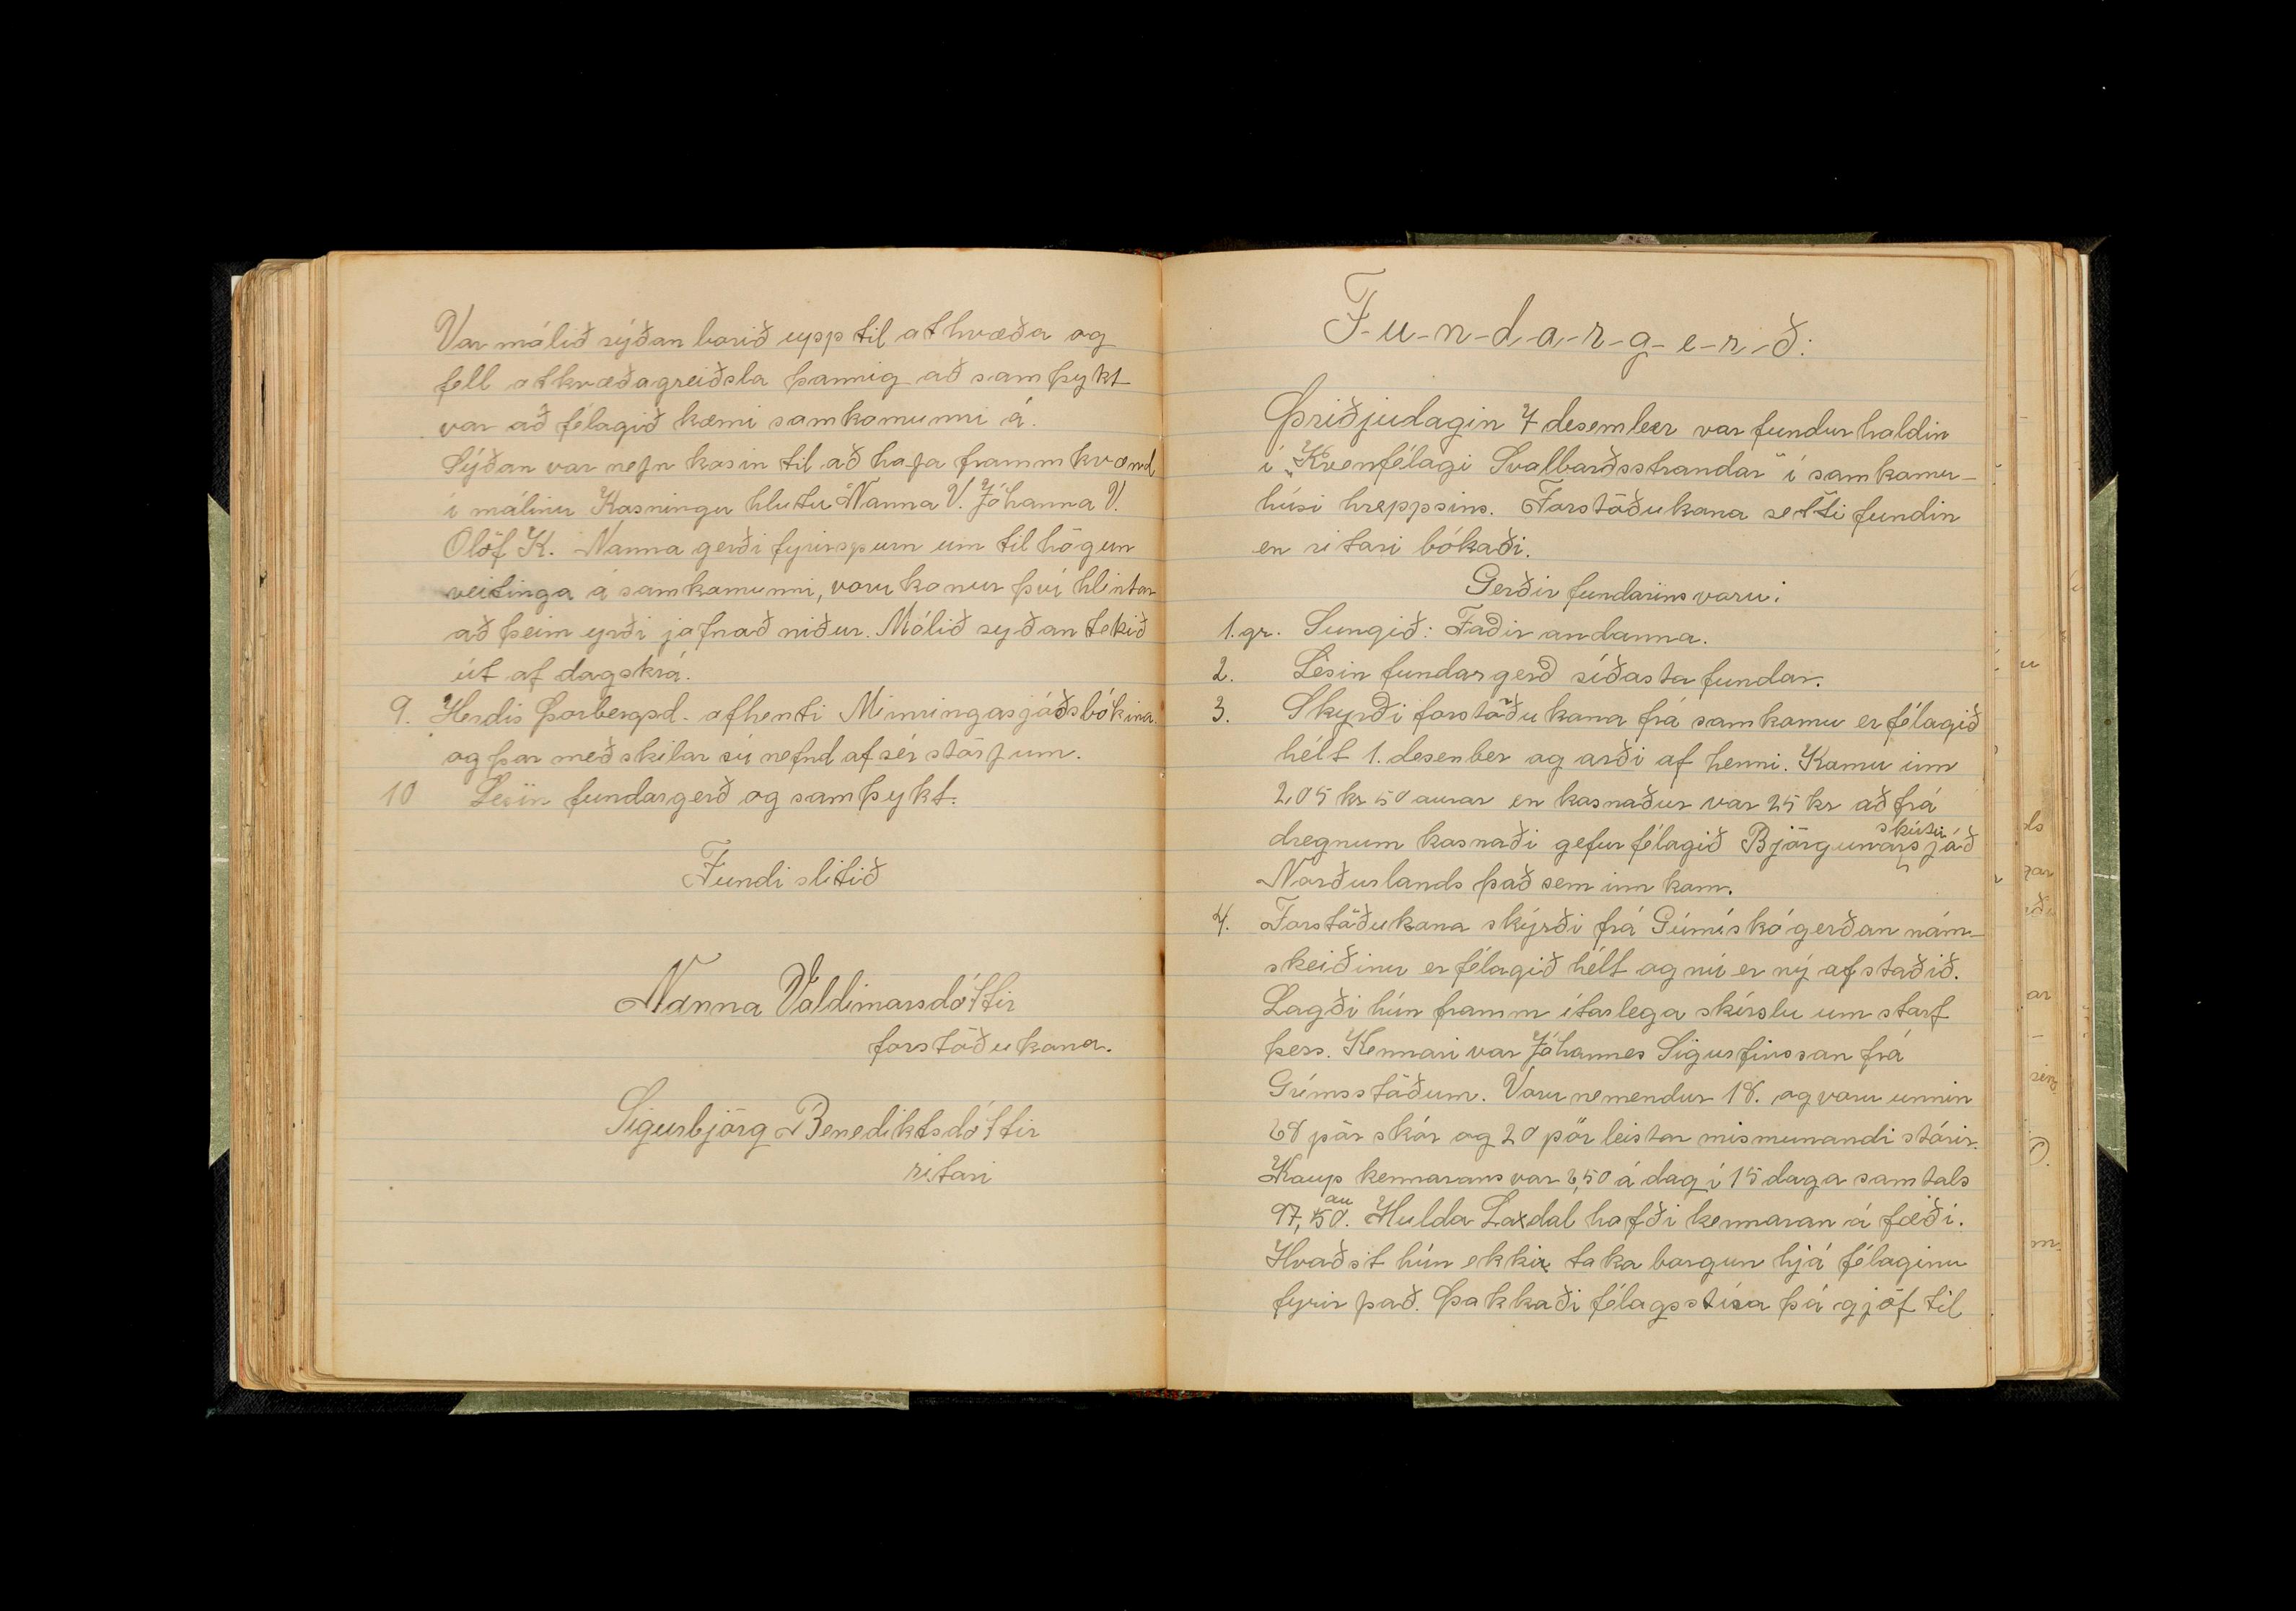 Var málið sýðan borið upp til athvæða og
fell atkvæðagreiðsla þannig að samþykt
var að félagið kæmi samkomunni á.
Sýðan var nefn kosin til að hafa frammkvæmd
í málinu Kosningu hlutu Nanna V. Jóhanna V.
Olöf K. Nanna gerði fyrirspurn um tilhögun
veitinga á samkomunni, voru konur því hlintar
að þeim yrði jafnað niður. Málið syðan tekið
út af dagskrá.
9. Herdis Þorbergsd. afhenti Minningasjóðsbókina
og þar með skilar sú nefnd af sér störfum.
10 Lesin fundargerð og samþykt.
Fundi slitið
Nanna Valdimarsdóttir
forstöðukona.
Sigurbjörg Benediktsdóttir
ritari
F-u-n-d-a-r-g-e-r-ð:
Þriðjudagin 7 desember var fundur haldin
í „Kvenfélagi Svalbarðsstrandar" í samkomu-
húsi hreppsins. Forstöðukona setti fundin
en ritari bókaði.
Gerðir fundarins voru:
1. gr. Sungið: Faðir andanna.
2. Lesin fundargerð síðasta fundar.
3. Skyrði forstöðukona frá samkomu er félagið
hélt 1. desenber og arði af henni. Komu inn
205 kr 50 aurar en kosnaður var 25 kr að frá
dregnum kosnaði gefur félagið Björgunarskútusjóð
Norðurlands það sem inn kom.
4. Forstöðukona skýrði frá Gúmískógerðar nám-
skeiðinu er félagið hélt og nú er ný afstaðið.
Lagði hún framm ítarlega skírslu um starf
þess. Kennari var Jóhannes Sigurfinsson frá
Grímsstöðum. Voru nemendur 18. og voru unnin
68 pör skór og 20 pör leistar mismunandi stórir.
Kaup kennarans var 6,50 á dag í 15 daga samtals
97,50 au. Hulda Laxdal hafði kennaran á fæði.
Hvaðst hún ekki taka borgun hjá félaginu
fyrir það. Þakkaði félagsstjóra þá gjöf til